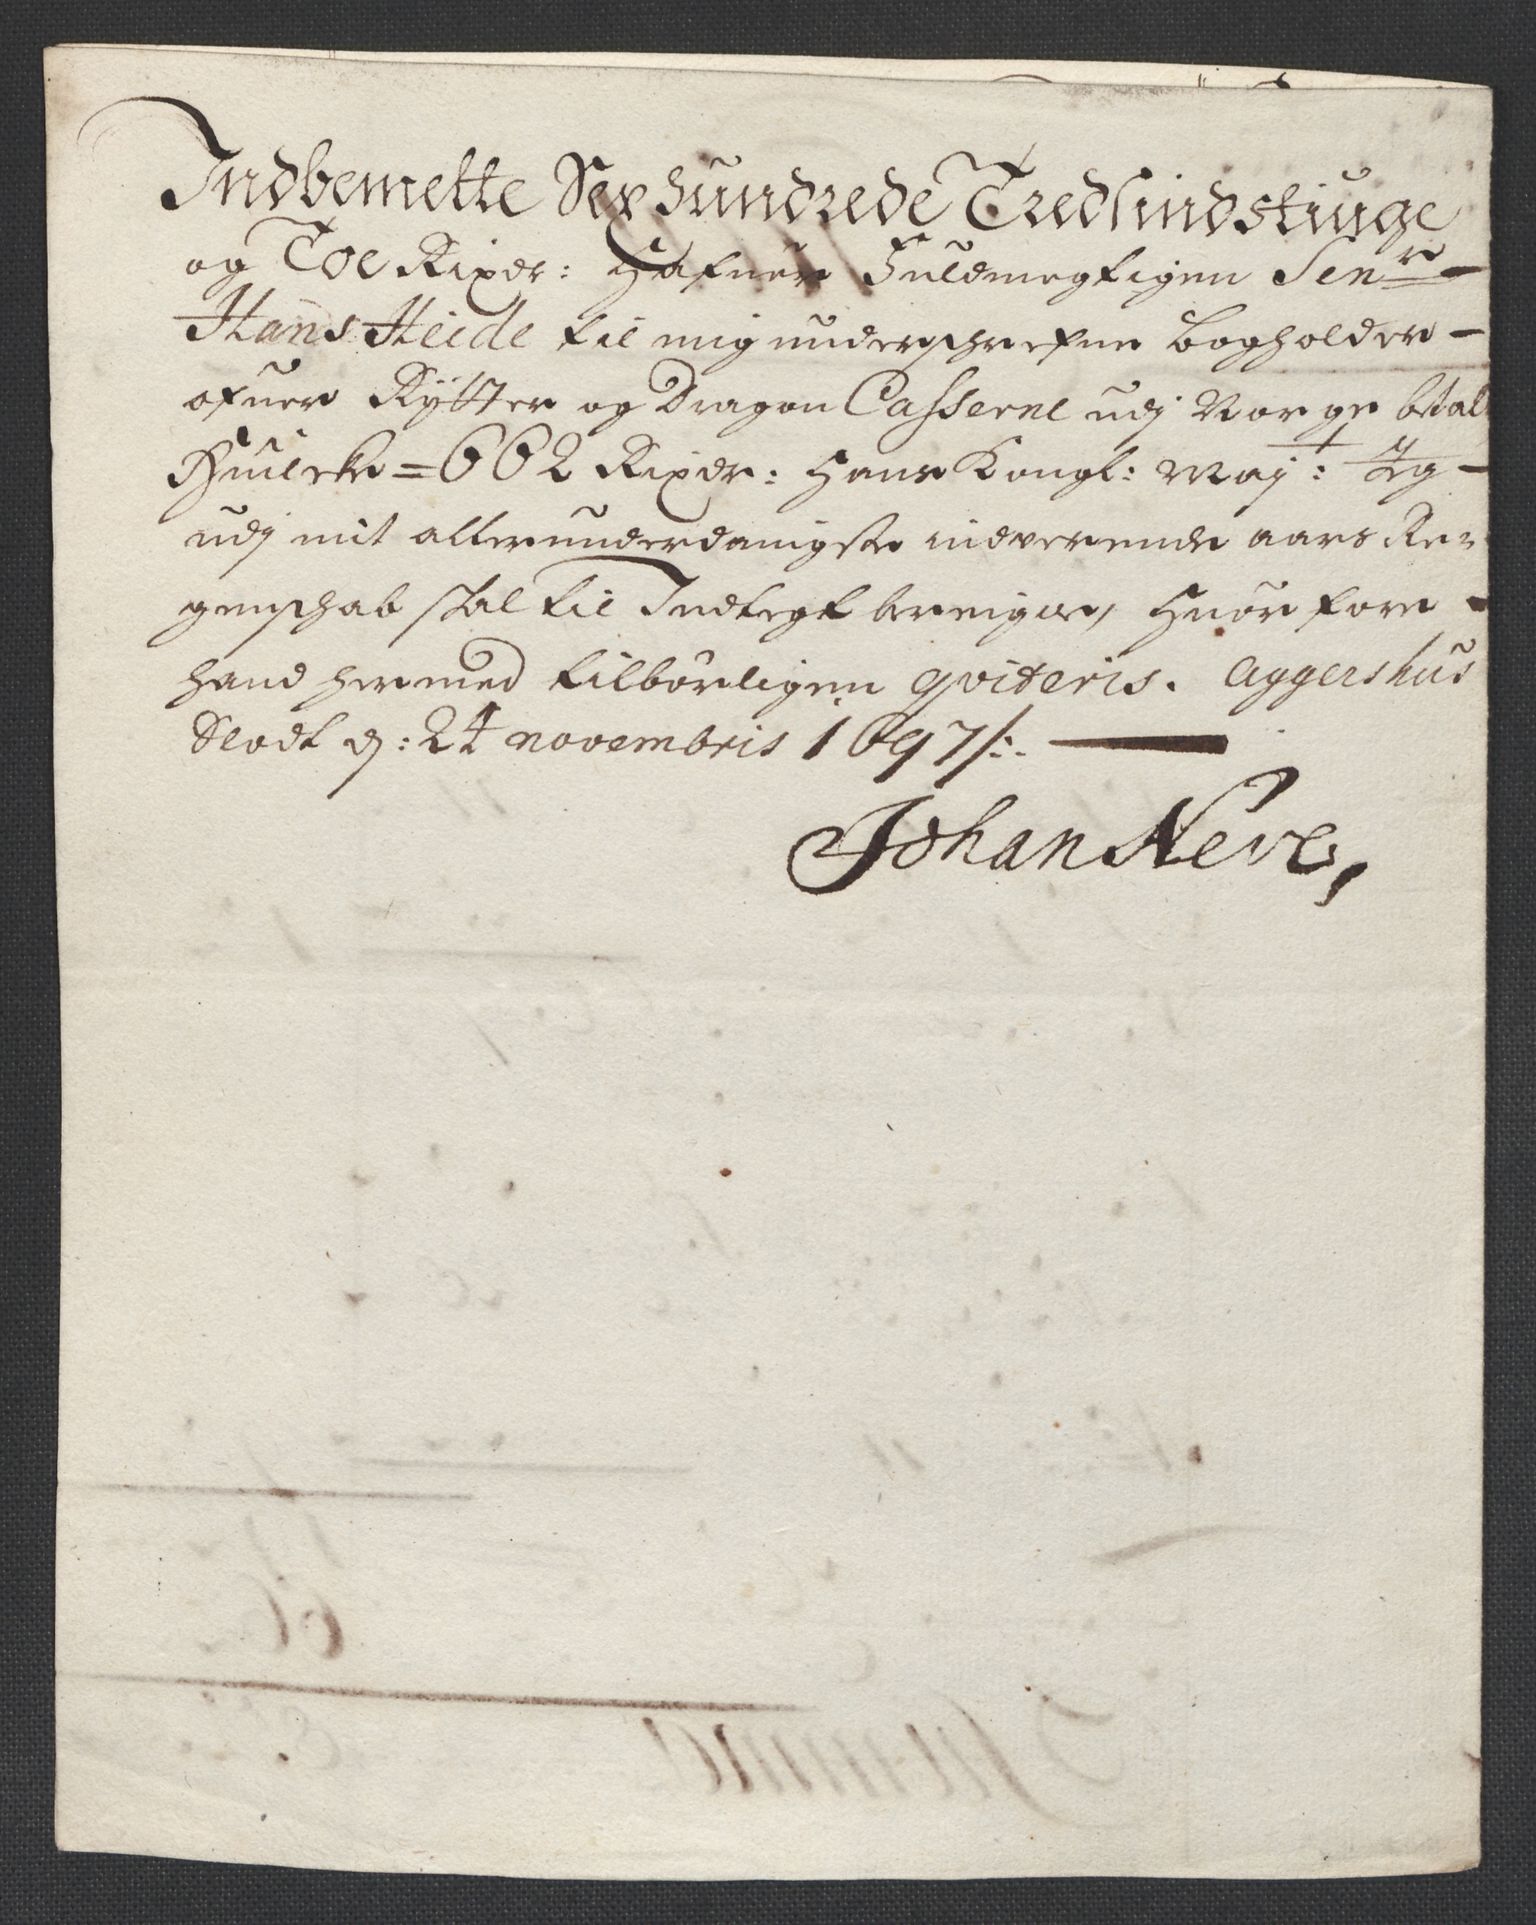 Indbemelte Sex hundrede Tredsindstiuge
og Toe Rixdr: Hafuer Fuldmegtigen Senr
Hans Heide til mig underschrefne Bogholder
ofuer Rÿtter og Dragon Casserne udj Norge betalt
Huilcke = 662 Rixdr: Hans Kongl: Mayt:
udj mit allerunderdanigste indverende aars Re-
genschab skal til Indtegt bereignes, Huorfore
hand hermed tilbørligen qviteris. Aggershus
Slodt d: 24 novembris 1697/:.
Johan Neve,